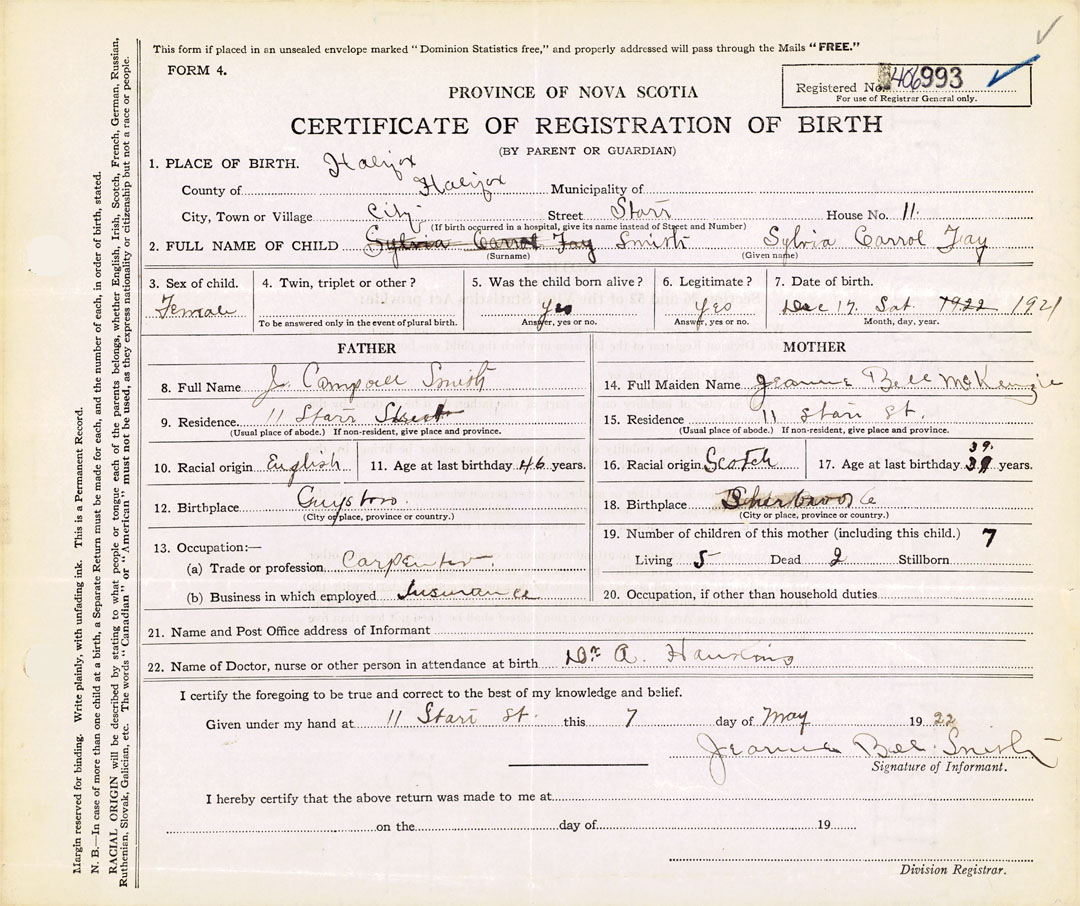 This form if placed in an unsealed envelope marked "Dominion Statistics free," and properly addressed will pass through the Mails "FREE."
FORM 4.
Registered No. 406993
For use of Registrar General only.
PROVINCE OF NOVA SCOTIA
CERTIFICATE OF REGISTRATION OF BIRTH
(BY PARENT OR GUARDIAN)
1. PLACE OF BIRTH. Halifax
County of Halifax Municipality of
City, Town or Village City Street Starr House No. 11.
(If birth occurred in a hospital, give its name instead of Street and Number)
2. FULL NAME OF CHILD Sylvia Carrol Fay Smith Sylvia Carrol Fay
(Surname) (Given name)
3. Sex of child. 4. Twin, triplet or other? 5. Was the child born alive? 6. Legitimate? 7. Date of birth.
Female Yes Yes Dec 17. Sat. 1922 1921
To be answered only in the event of plural birth. Answer, yes or no. Answer, yes or no. Month, day, year.
FATHER
8. Full Name J. Campbell Smith
9. Residence 11 Starr Street
(Usual place of abode.) If non-resident, give place and province.
10. Racial origin English 11. Age at last birthday 46 years.
12. Birthplace Guysboro.
(City or place, province or country.)
13. Occupation:—
(a) Trade or profession Carpenter.
(b) Business in which employed Insurance
MOTHER
14. Full Maiden Name Jeanne Bell McKenzie
15. Residence 11 Starr St.
(Usual place of abode.) If non-resident, give place and province.
39.
16. Racial origin Scotch 17. Age at last birthday 39 years.
18. Birthplace Sherbrooke
(City or place, province or country.)
19. Number of children of this mother (including this child.) 7
Living 5 Dead 2 Stillborn
20. Occupation, if other than household duties
21. Name and Post Office address of Informant
22. Name of Doctor, nurse or other person in attendance at birth Dr. A.
I certify the foregoing to be true and correct to the best of my knowledge and belief.
Given under my hand at 11 Starr St. this 7 day of May 1922
Jeanne Bell Smith
Signature of Informant.
I hereby certify that the above return was made to me at
on the day of 19
Division Registrar.
Margin reserved for binding. Write plainly, with unfading ink. This is a Permanent Record.
N. B.—In case of more than one child at a birth, a Separate Return must be made for each, and the number of each, in order of birth, stated.
RACIAL ORIGIN will be described by stating to what people or tongue each of the parents belongs, whether English, Irish, Scotch, French, German, Russian,
Ruthenian, Slovak, Galician, etc. The words "Canadian" or "American" must not be used, as they express nationality or citizenship but not a race or people.